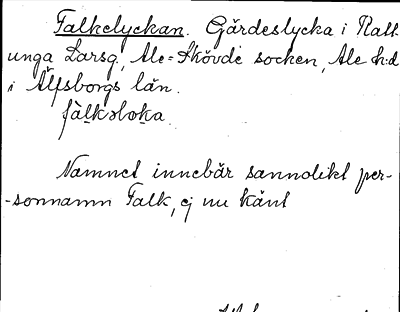 Falkelyckan. Gärdeslycka i Rall-
unga Larsg, Ale-Skövde socken, Ale hd
i Älfsborgs län.
fàlkəloka.
Namnet innebär sannolikt per-
-sonnamn Falk, ej nu känt